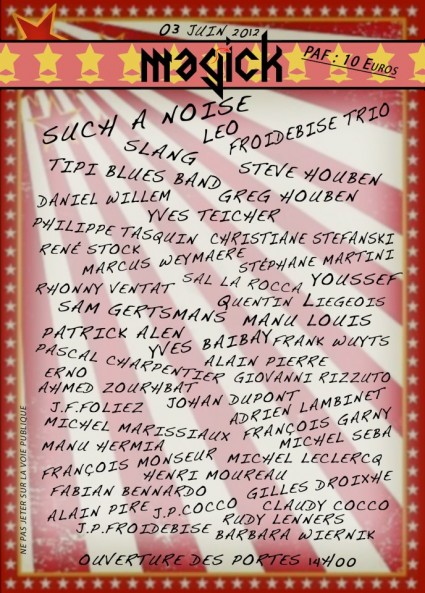 03 JUIN 2012
magick
PAF : 10 EUROS
SUCH A NOISE
LEO
SLANG
FROIDEBISE TRIO
TIPI BLUES BAND
STEVE HOUBEN
DANIEL WILLEM
GREG HOUBEN
YVES TEICHER
PHILIPPE TASQUIN
CHRISTIANE STEFANSKI
RENÉ STOCK
MARCUS WEYMAERE
STÉPHANE MARTINI
RHONNY VENTAT
SAL LA ROCCA
YOUSSEF
SAM GERTSMANS
QUENTIN LIEGEOIS
MANU LOUIS
PATRICK ALEN
YVES BAIBAY
FRANK WUYTS
PASCAL CHARPENTIER
ALAIN PIERRE
ERNO
GIOVANNI RIZZUTO
AHMED ZOURHBAT
J.F.FOLIEZ
JOHAN DUPONT
ADRIEN LAMBINET
MICHEL MARISSIAUX
FRANÇOIS GARNY
MANU HERMIA
MICHEL SEBA
FRANÇOIS MONSEUR
MICHEL LECLERCQ
HENRI MOUREAU
FABIAN BENNARDO
GILLES DROIXHE
ALAIN PIRE
J.P.COCCO
CLAUDY COCCO
RUDY LENNERS
J.P.FROIDEBISE
BARBARA WIERNIK
OUVERTURE DES PORTES 14H00
NE PAS JETER SUR LA VOIE PUBLIQUE